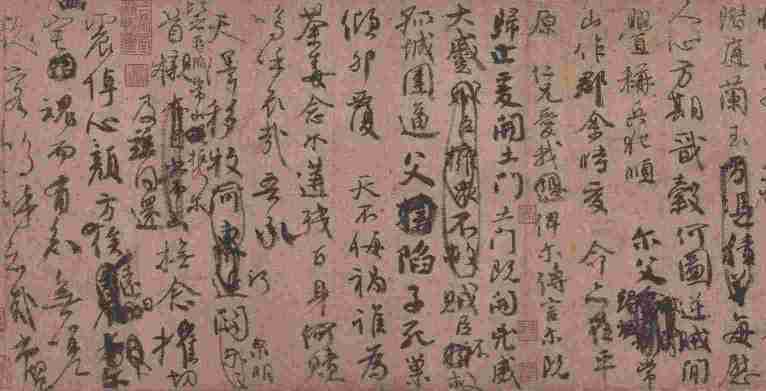 階庭蘭玉方憑積善每慰
人心方期戩穀何圖逆賊間
釁稱兵犯順爾父
山作郡余時受命亦在平
原仁兄愛我俾爾傳言爾既
歸止爰開土門土門既開凶威
大蹙賊臣擁眾不救賊臣不救
孤城圍逼父陷子死巢
傾卵覆天不悔禍誰為
荼毒念爾遘殘百身何贖
嗚呼哀哉吾承
泉明
天澤移牧河關
比者再陷常山攜爾
首櫬亦自常山撫念摧切
及茲同還
震悼心顏方俟遠日
宅魂而有知無嗟
久客嗚呼哀哉尚饗